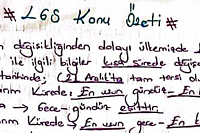 # LGS Konu Özeti #
n değişikliğinden dolayı ülkemizde
ile ilgili bilgiler kısa sürede değişe
tarihinde; (21 Aralık'ta tam tersi ol
rım Kürede: En uzun gündüz - En
→ Gece - gündüz eşittir
rım Kürede → En uzun gece - En